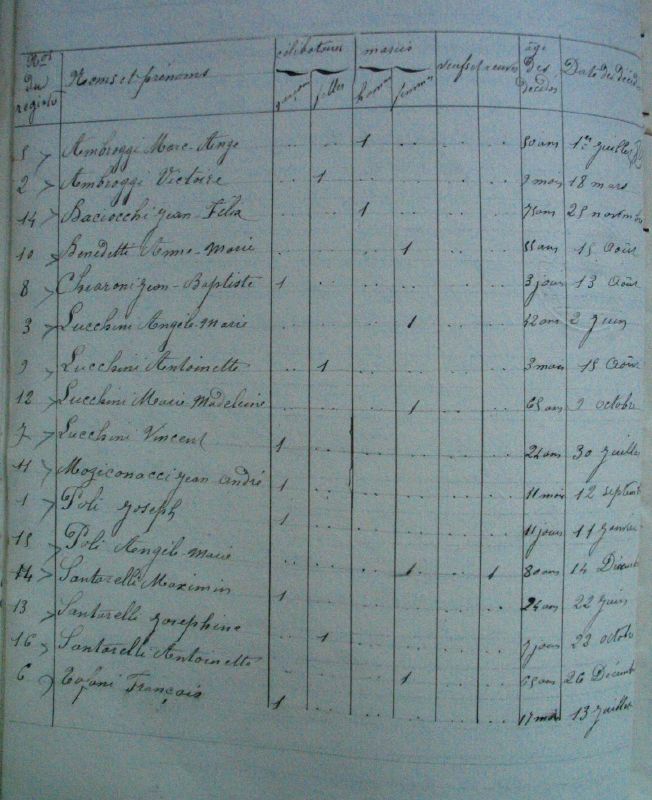 Nos du registre Noms et prénoms célibataires mariés veufs et veuves âge des décédés Date des décès
garçons filles hommes femmes
5 Ambroggi Marc-Ange .. .. 1 .. .. .. 50 ans 1er juillet
2 Ambroggi Victoire .. 1 .. .. .. .. 9 mois 18 mars
14 Baciocchi Jean-Felix .. .. 1 .. .. .. 75 ans 25 novembre
10 Benedetti Anne-Marie .. .. .. 1 .. .. 55 ans 15 Août
8 Chiaroni Jean-Baptiste 1 .. .. .. .. .. 3 jours 13 Août
3 Lucchini Angèle-Marie .. .. .. 1 .. .. 42 ans 2 Juin
9 Lucchini Antoinette .. 1 .. .. .. .. 3 mois 15 Août
12 Lucchini Marie Madeleine .. .. .. 1 .. .. 65 ans 9 octobre
7 Lucchini Vincent 1 .. .. .. .. .. 24 ans 30 juillet
11 Moziconacci Jean André 1 .. .. .. .. .. 11 mois 12 septembre
1 Poli Joseph 1 .. .. .. .. .. 11 jours 11 janvier
15 Poli Angèle-Marie .. .. .. 1 .. 1 80 ans 14 Décemb
Santarelli Maximin 1 .. .. .. .. .. 24 ans 22 juin
13 Santarelli Josephine .. 1 .. .. .. .. 7 jours 22 octob
16 Santarelli Antoinette .. .. .. 1 .. .. 65 ans 26 Décemb
6 François 1 .. .. .. .. .. 17 mois 13 juillet